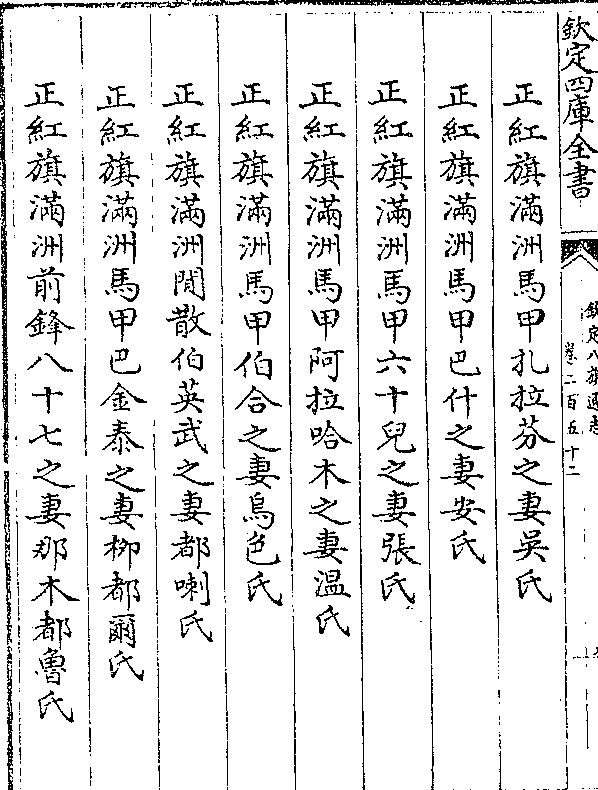 欽定四庫全書
欽定八旗通志
卷二百五十二
正紅旗滿洲馬甲扎拉芬之妻吳氏
正紅旗滿洲馬甲巴什之妻安氏
正紅旗滿洲馬甲六十兒之妻張氏
正紅旗滿洲馬甲阿拉哈木之妻溫氏
正紅旗滿洲馬甲伯合之妻烏色氏
正紅旗滿洲閒散伯英武之妻都喇氏
正紅旗滿洲馬甲巴金泰之妻柳都爾氏
正紅旗滿洲前鋒八十七之妻那木都魯氏